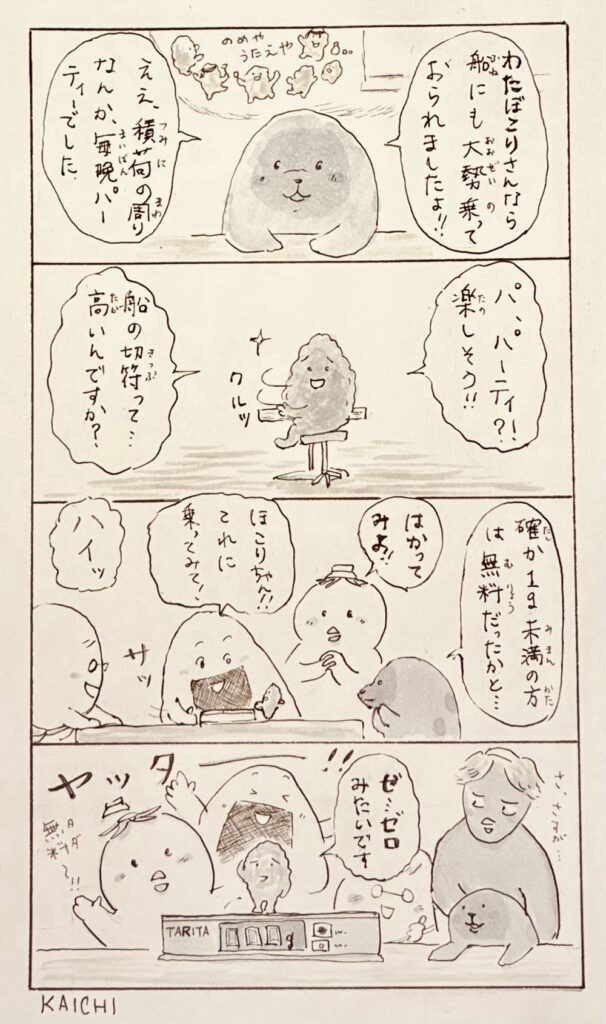 のめや
うたえや
わたぼこりさんなら
船にも大勢乗って
おられましたよ!!
ええ、積荷の周り
なんか、毎晩パー
ティーでした
パ、パーティ?!
楽しそう!!
クルッ
船の切符って…
高いんですか?
確か1g未満の方
は無料だったかと…
はかって
みよ!!
ほこりちゃん!!
これに
乗ってみて!
サッ
ハイッ
さ、さすが…
ヤッター!!
ゼ…ゼロ
みたいです
無料ダ〜!!
TARITA
000g
KAICHI